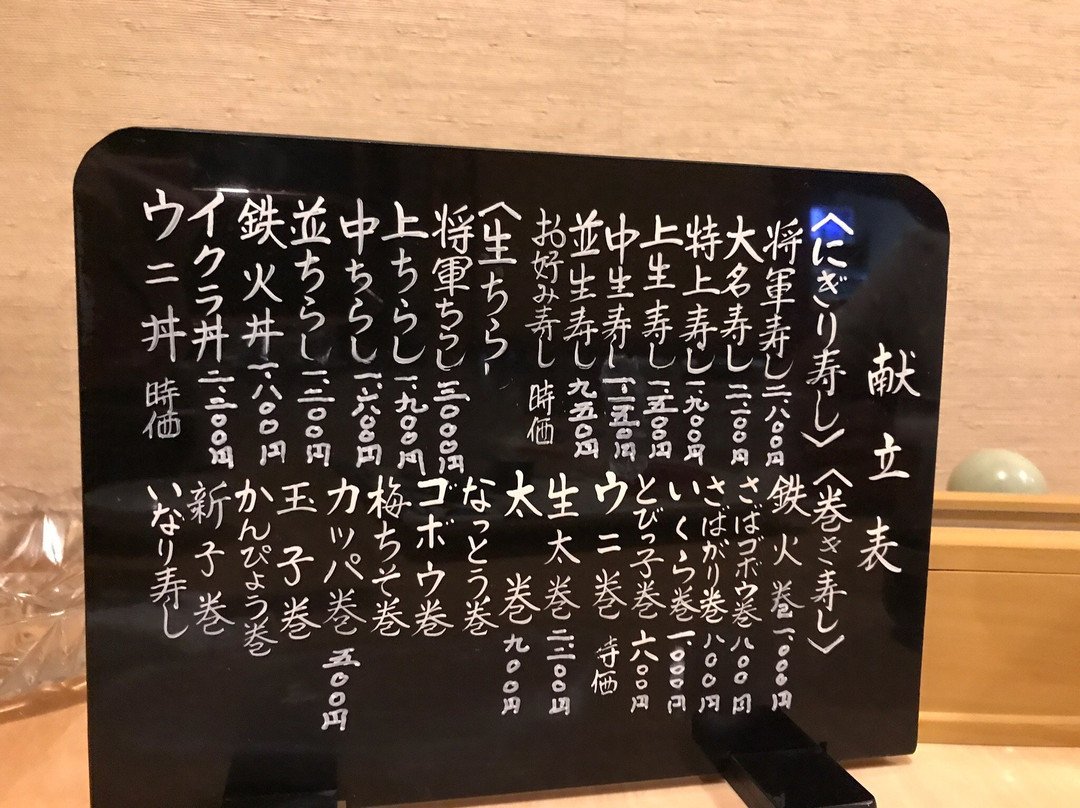 献立表
〈にぎり寿し〉
将軍寿し 二、八〇〇円
大名寿し 二、二〇〇円
特上寿し 一、九〇〇円
上生寿し 一、五〇〇円
中生寿し
並生寿し 九五〇円
お好み寿し 時価
〈生ちら
将軍ちらし 三、〇〇〇円
上ちらし 一、九〇〇円
中ちらし 一、六〇〇円
並ちらし 一、二〇〇円
鉄火丼 一、八〇〇円
イクラ丼 二、二〇〇円
ウニ丼 時価
〈巻き寿し〉
鉄火巻 一、〇〇〇円
さばゴボウ巻 八〇〇円
さばがり巻 八〇〇円
いくら巻 一、〇〇〇円
とびっ子巻 六〇〇円
ウニ巻 時価
生太巻 二、二〇〇円
太巻 九〇〇円
なっとう巻
ゴボウ巻
梅ちそ巻
カッパ巻 五〇〇円
玉子巻
かんぴょう巻
新子巻
いなり寿し